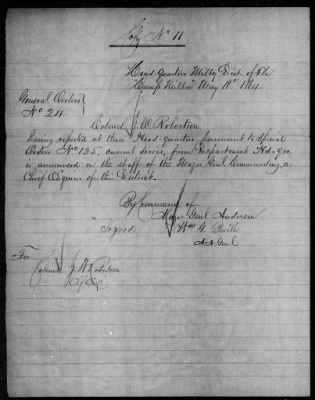 Copy No 11
Head Quarters Milty Dist. of Fla
Camp Milton May 11th 1864
General Orders
No 24
Colonel J. W. Robertson
having reported at these Head-quarters, pursuant to Special
Orders No 125, current series, from Department Hd-qrs.
is announced on the staff of the Major Genl. Commanding, as
Chief Engineer of this District.
By Command of
Major Genl Anderson
Signed Wm G.
A A Genl
For
Colonel J W Robertson